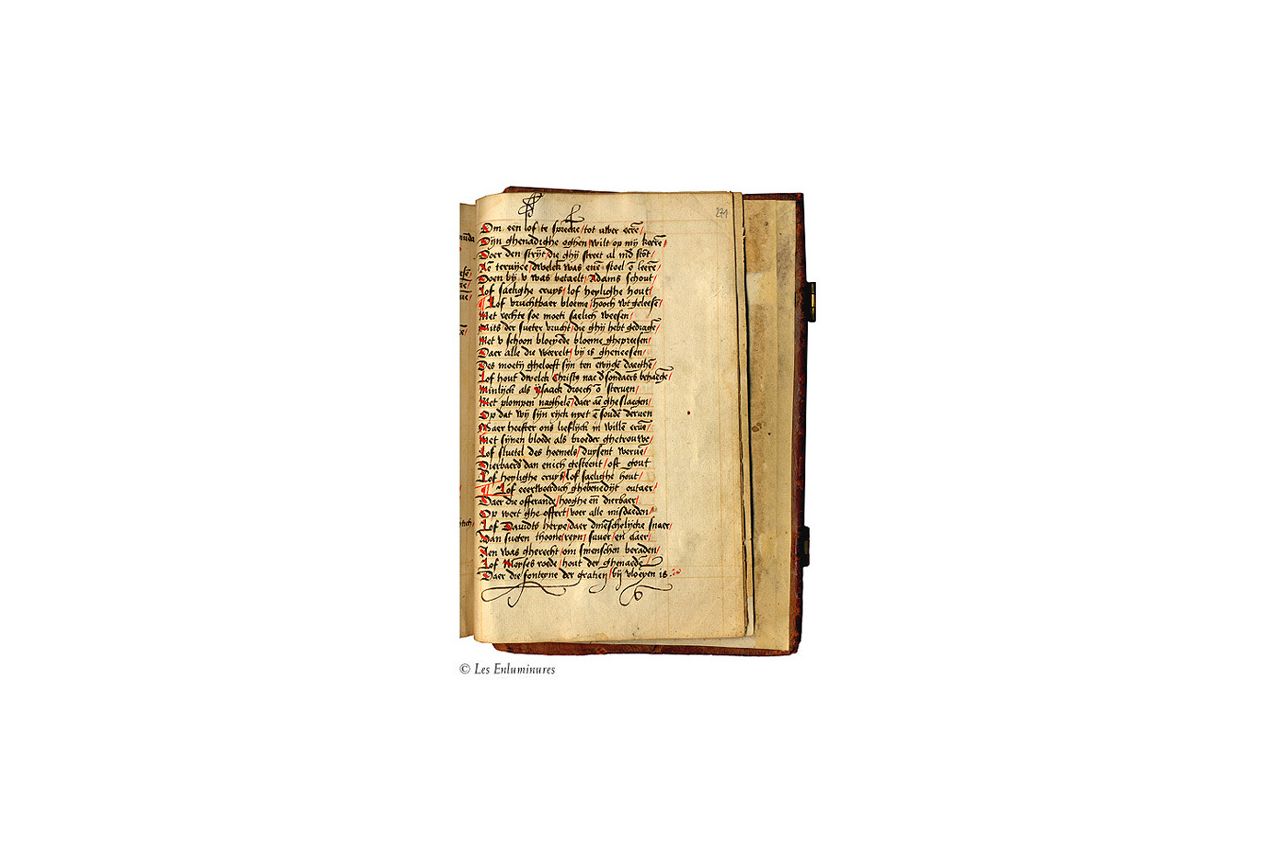 271
Om een lof te sprecke / tot uwer eere /
Dijn ghenadighe oghen / wilt op mij keere /
Doer den strijt / die ghij street al
Aē / dwelck was eenē stoel ō leere /
Doen bij v was betaelt / Adams schout
Lof saelighe cruijs / lof heylighe hout /
¶ Lof vruchtbaer bloeme / hooch
Met rechte soe moeti saelich weesen /
Mits der sueter vrucht / die ghij hebt gedragē /
Met v schoon bloeyende bloeme ghepreesen /
Daer alle die weerelt / bij is gheneesen /
Des moetij gheloeft sijn ten ewigē daeghē /
Lof hout dwelck Christus nae
Minlijck als ijsaack droech ō sterven /
Met plompen naghelē / daer aē gheslaegen /
Op dat wij sijn rijck nyet ē soudē derven
Maer heefter ons lieflijck in willē ervē /
Met sijnen bloede als broeder ghetrouwe /
Lof sluetel des hemels / duysent wervē /
Dierbaerd dan enich gesteent / oft gout
Lof heylighe cruijs / lof saelighe hout /
¶ Lof eerweerdich ghebenedijt outaer /
Daer die offerande / hooghe eñ dierbaer /
Op wert ghe offert / voer alle misdaeden /
Lof Davidts herpe / daer dmēschelijcke snaer /
Van sueten thoone / reyn / suver / en claer /
Aen was gherecht / om smenschen beraden /
Lof Moyses roede / hout der ghenaedē
Daer die fonteyne der gratien / bij vloeyen is
© Les Enluminures